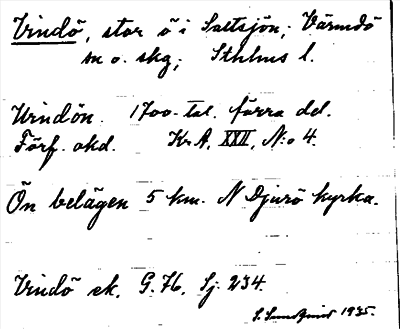 Vindö, stor ö i Saltsjön; Värmdö
sn o. skg; Sthlms l.
Windön. 1700-tal. förra del.
Förf. okd. KrA, XXII, N:o 4.
Ön belägen 5 km. N Djurö kyrka.
Vindö ek. G. 76. Sj. 234.
S. Sundquist 1935.